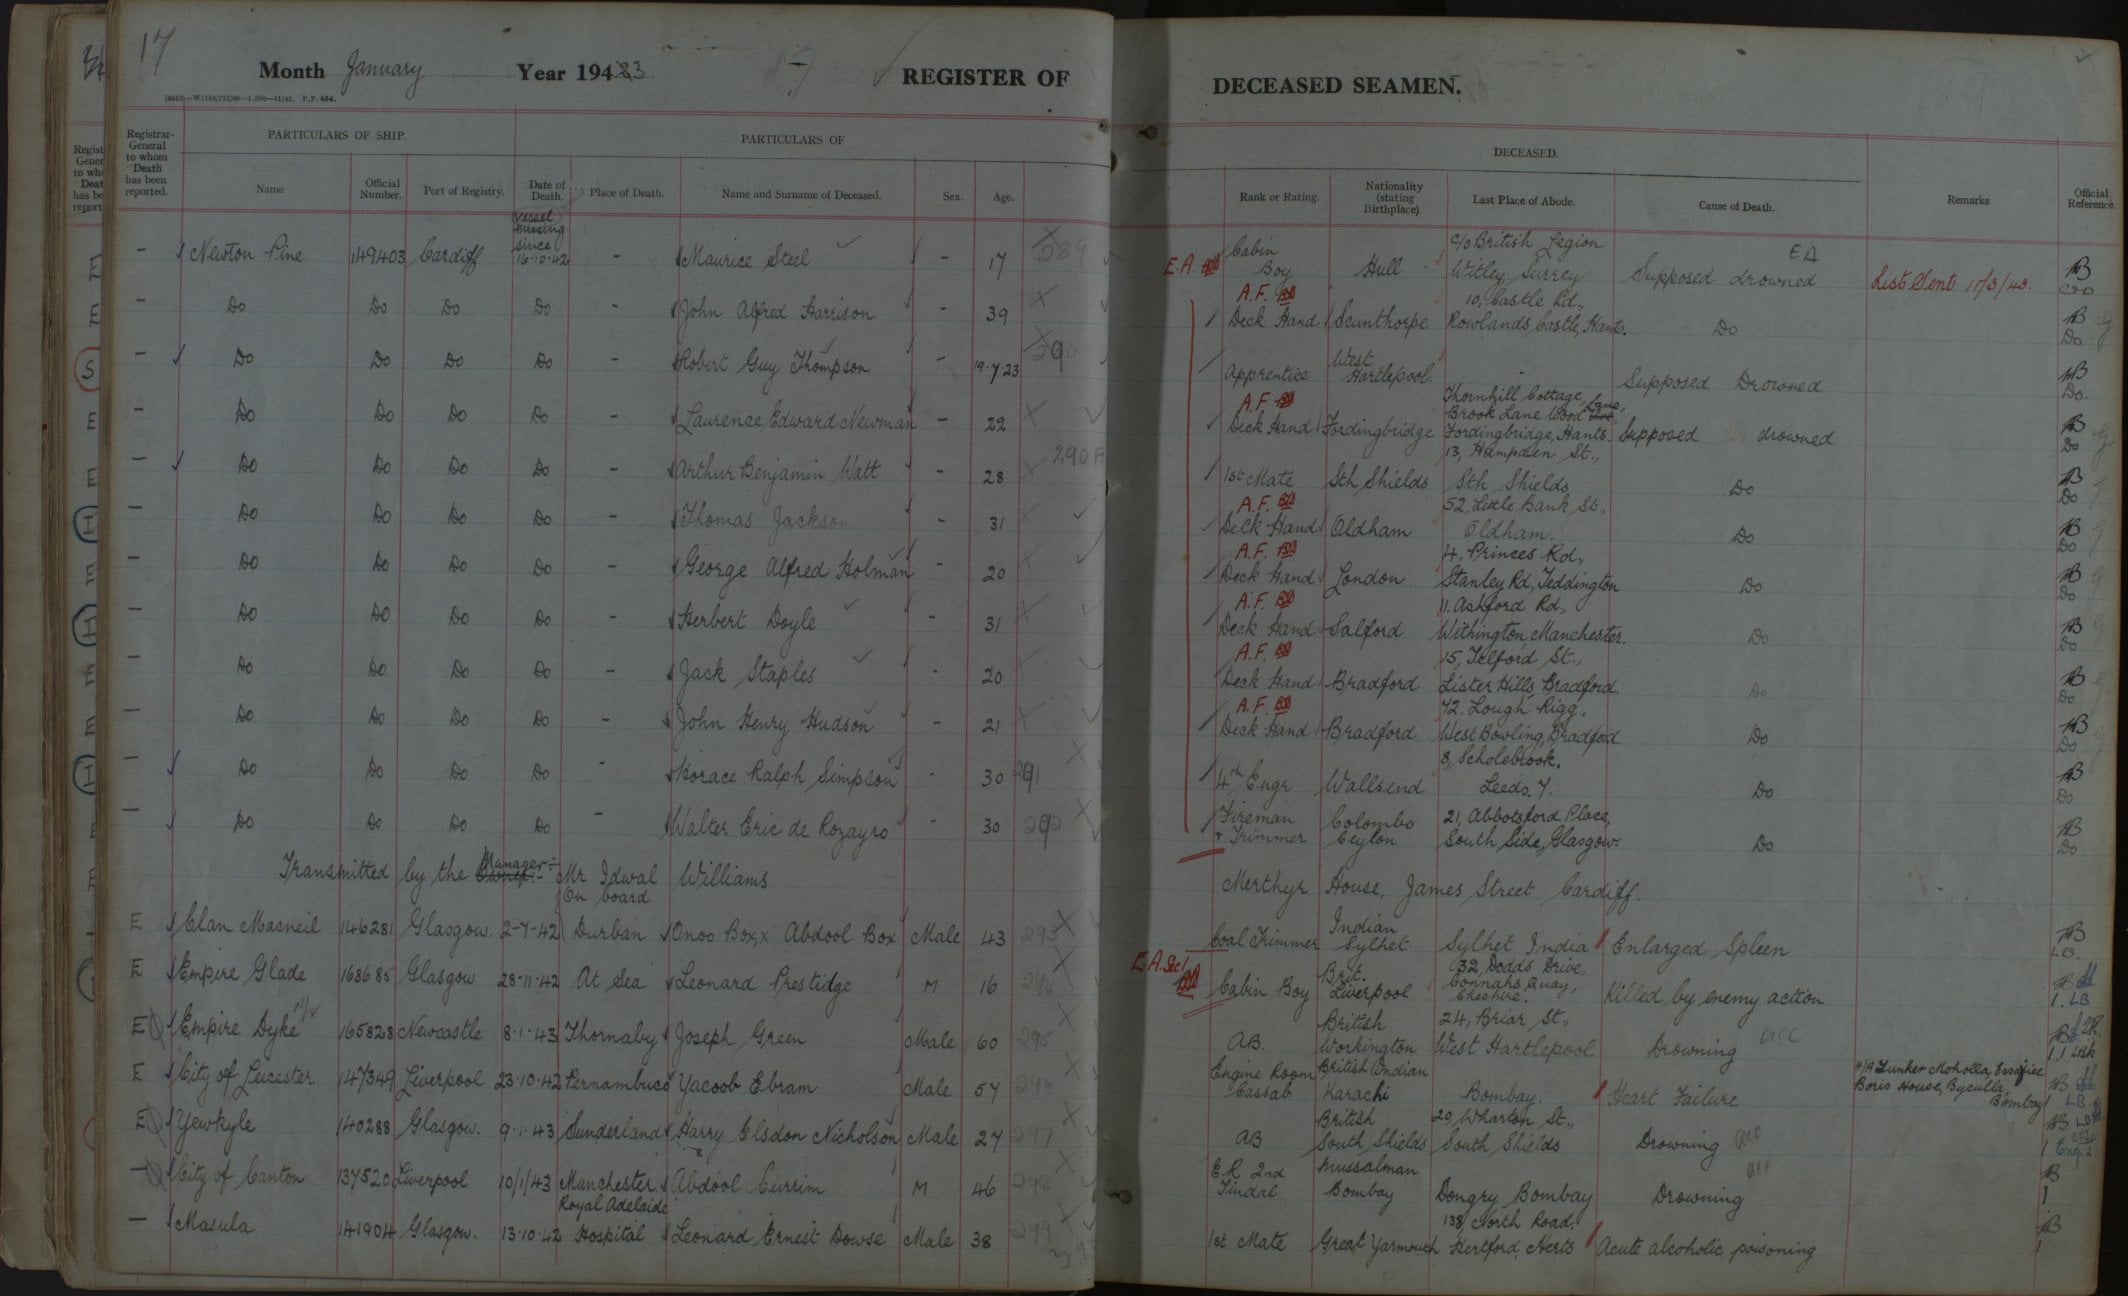 17
Month January Year 1943 REGISTER OF DECEASED SEAMEN.
Registrar-General to whom Death has been reported.
PARTICULARS OF SHIP.
PARTICULARS OF DECEASED.
Name Official Number. Port of Registry. Date of Death. Place of Death. Name and Surname of Deceased. Sex. Age. Rank or Rating. Nationality (stating Birthplace) Last Place of Abode. Cause of Death. Remarks Official Reference.
- Newton Pine 149403 Cardiff Vessel missing since 16-10-42 - Maurice Steel - 17 289 E.A. Cabin Boy Hull c/o British Legion Witley Surrey Supposed drowned EA List Sent 11/3/43.
- Do Do Do Do - John Alfred Harrison - 39 A.F. Deck Hand Scunthorpe 10, Castle Rd., Rowlands Castle, Hants. Do
- Do Do Do Do - Robert Guy Thompson - 19.7.23 290 Apprentice West Hartlepool. - Supposed Drowned
- Do Do Do Do - Laurence Edward Newman - 22 A.F. Deck Hand Fordingbridge Thornhill Cottage, Brook Lane Wood Lane, Fordingbridge, Hants. Supposed drowned
- Do Do Do Do - Arthur Benjamin Watt - 28 290A 1st Mate Sth Shields 13, Hampden St., Sth Shields Do
- Do Do Do Do - Thomas Jackson - 31 A.F. Deck Hand Oldham 52, Little Bank St., Oldham. Do
- Do Do Do Do - George Alfred Holman - 20 A.F. Deck Hand London 4, Princes Rd., Stanley Rd, Teddington Do
- Do Do Do Do - Herbert Doyle - 31 A.F. Deck Hand Salford 11. Ashford Rd., Withington, Manchester. Do
- Do Do Do Do - Jack Staples - 20 A.F. Deck Hand Bradford 15, Telford St., Lister Hills, Bradford Do
- Do Do Do Do - John Henry Hudson - 21 A.F. Deck Hand Bradford 72. Lough Rigg, West Bowling, Bradford Do
- Do Do Do Do - Horace Ralph Simpson - 30 291 4th Engr Wallsend 8, Scholebrook. Leeds. 7. Do
- Do Do Do Do - Walter Eric de Rozayro - 30 292 Fireman & Trimmer Colombo Ceylon 21, Abbotsford Place, South Side, Glasgow. Do
Transmitted by the Manager:- Mr Idwal Williams Merthyr House, James Street Cardiff.
E Clan Macneil 146281 Glasgow. 2-7-42 On board Durban Onoo Box, x Abdool Box Male 43 293 Coal Trimmer Indian Sylhet Sylhet India Enlarged Spleen
E Empire Glade 168685 Glasgow 28-11-42 At Sea Leonard Prestidge M 16 294 E.A. Sec/ Cabin Boy Brit. Liverpool 32, Dodds Drive, Connahs Quay, Cheshire. Killed by enemy action
E Empire Dyke 165828 Newcastle 8.1.43 Thornaby Joseph Green Male 60 295 AB. British Workington 24, Briar St., West Hartlepool Drowning acc
E City of Leicester 147349 Liverpool 23-10-42 Pernambuco Yacoob Ebram Male 57 296 Engine Room Cassab British Indian Karachi Bombay. Heart Failure
E Yewkyle 140288 Glasgow. 9.1.43 Sunderland Harry Elsdon Nicholson Male 27 297 AB British South Shields 20, Wharton St., South Shields Drowning acc
- City of Canton 137520 Liverpool 10/1/43 Manchester Abdool Currim M 46 298 E.R. 2nd Tindal Mussalman Bombay Dongry Bombay Drowning acc
- Masula 141904 Glasgow. 13.10.42 Royal Adelaide Hospital Leonard Ernest Dowse Male 38 299 1st Mate Great Yarmouth 138, North Road, Hertford, Herts Acute alcoholic poisoning